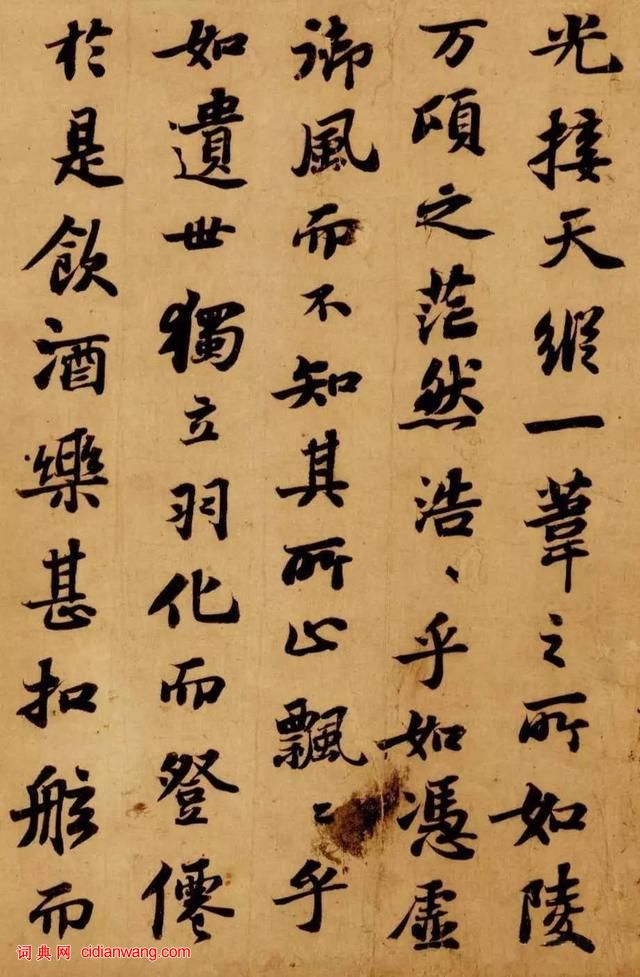 光接天縱一葦之所如陵
万頃之茫然浩〻乎如馮虛
御風而不知其所止飄〻乎
如遺世獨立羽化而登僊
於是飲酒樂甚扣舷而
词典网 cidianwang.com